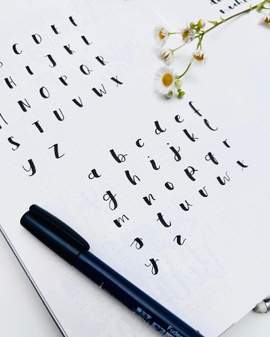 B C D E F
H I J K L
N O P Q R
S T U V W X
Y Z
a b c d e f
g h i j k l
m n o p q r
s t u v w x
y z